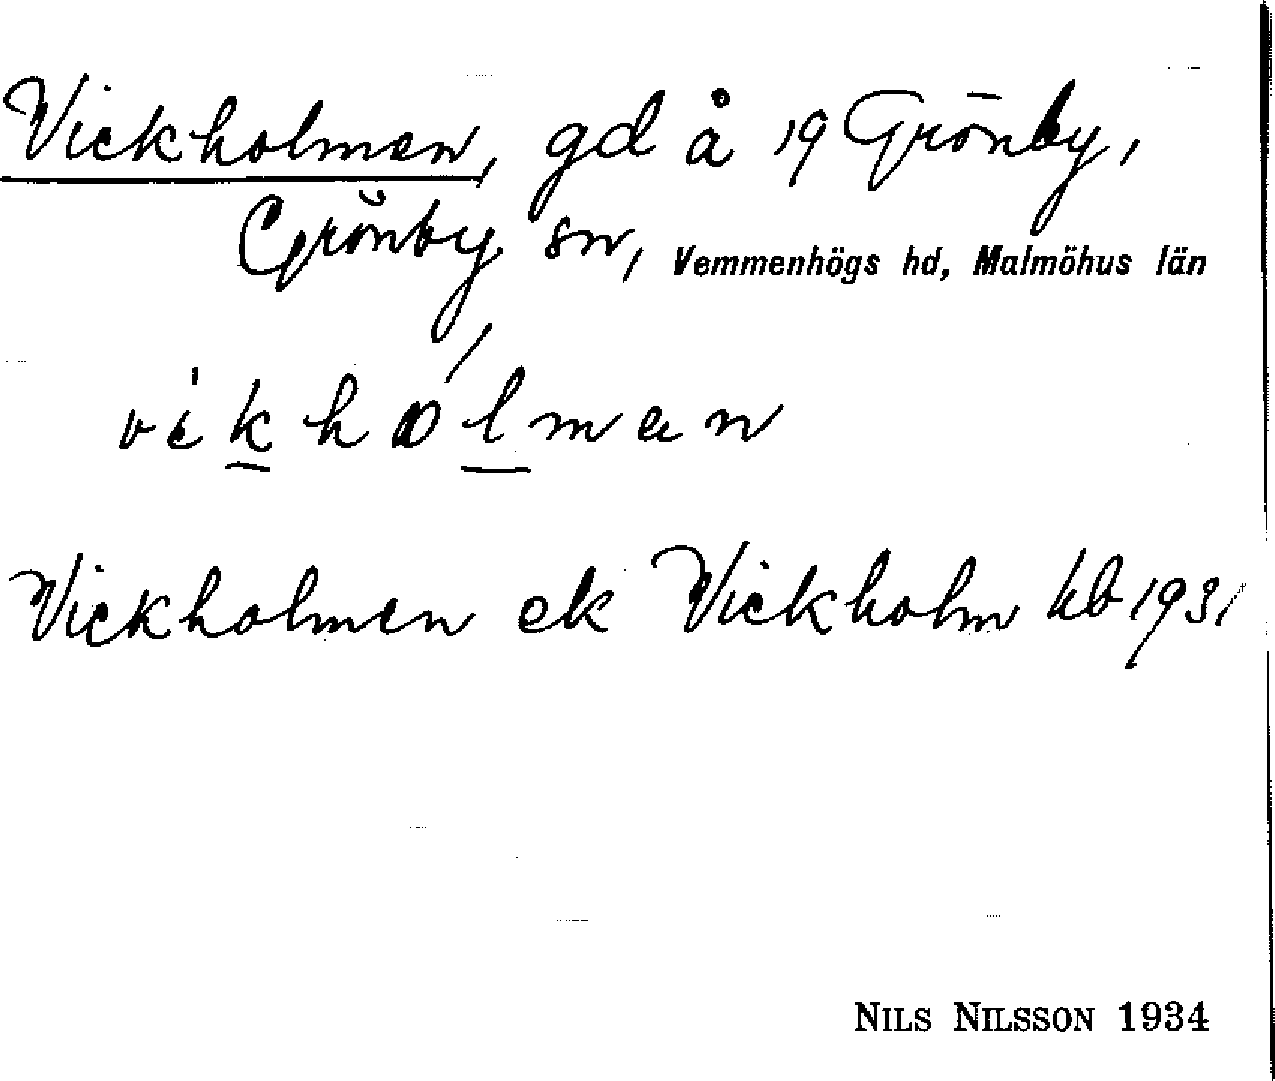 Vickholmen, gd å 19 Grönby,
Grönby sn, Vemmenhögs hd, Malmöhus län
vikholman
Vickholmen ek Vickholm kb 1931
NILS NILSSON 1934